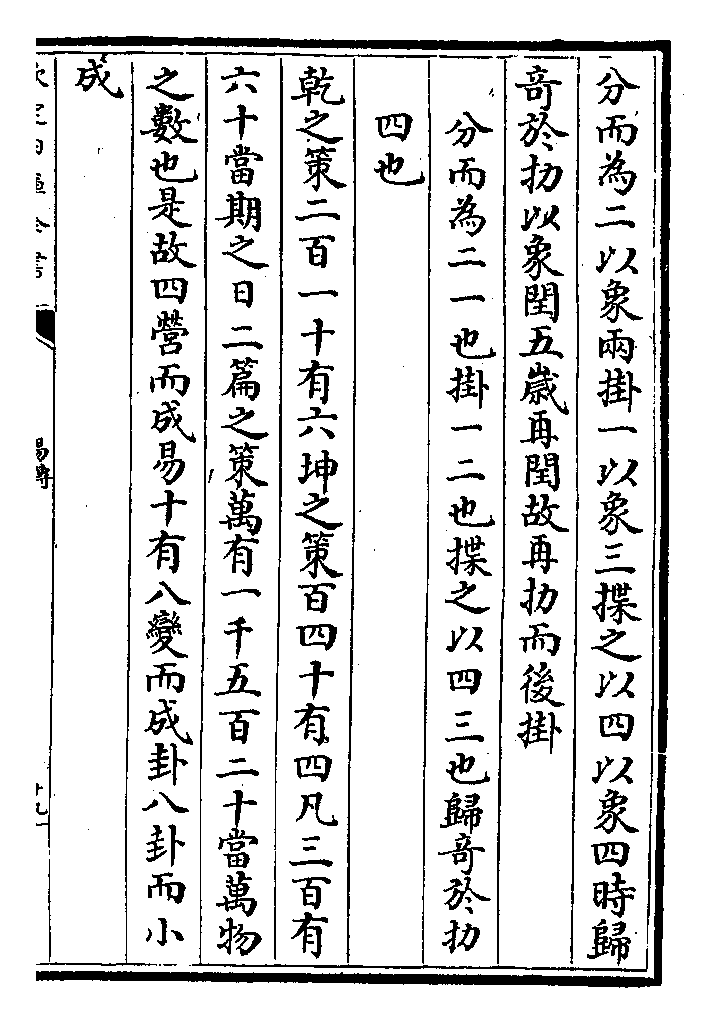 分而為二以象兩掛一以象三揲之以四以象四時歸
竒於扐以象閏五歳再閏故再扐而後掛
分而為二一也掛一二也揲之以四三也歸竒於扐
四也
乾之策二百一十有六坤之策百四十有四凡三百有
六十當期之日二篇之策萬有一千五百二十當萬物
之數也是故四營而成易十有八變而成卦八卦而小
成
易傳